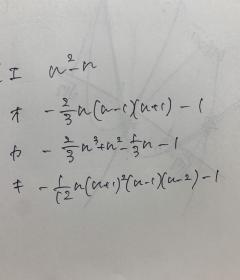 エ n²-n
オ -2/3 n(n-1)(n+1)-1
カ -2/3 n³+n²-1/3 n-1
キ -1/12 n(n+1)²(n-1)(n-2)-1